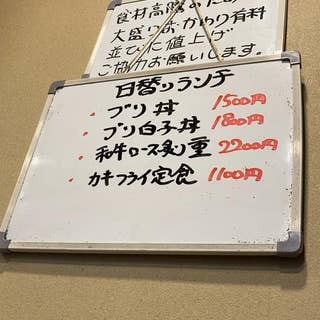 食材高騰のため
大盛りおかわり有料
並びに値上げ
ご協力お願いします。
日替りランチ
・ブリ丼 1500円
・ブリ白子丼 1800円
・和牛ロース炙り重 2200円
・カキフライ定食 1100円